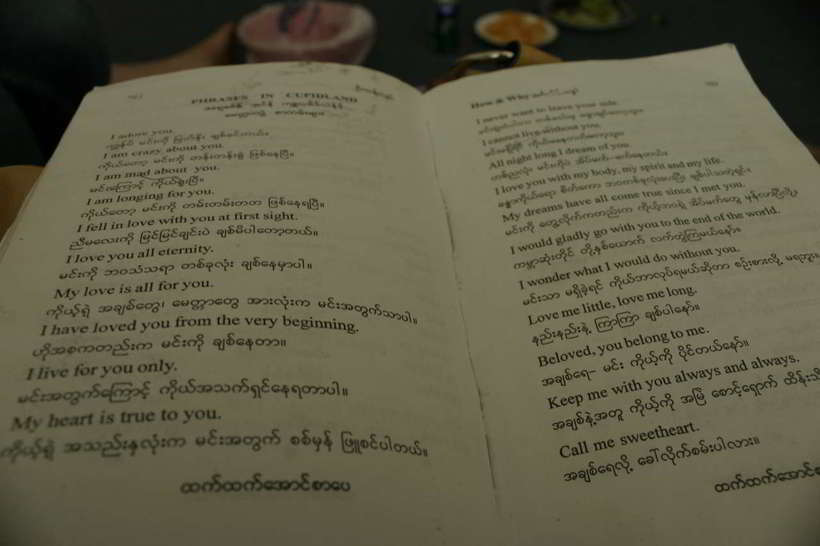 PHRASES IN CUPIDLAND
I adore you.
I am crazy about you.
ကိုယ်တော့ မင်းကို တန်းတန်းစွဲ ဖြစ်နေပြီ။
I am mad about you.
မင်းကြောင့် ကိုယ်ရူးပြီ။
I am longing for you.
ကိုယ်တော့ မင်းကို တမ်းတမ်းတတ ဖြစ်နေရပြီ။
I fell in love with you at first sight.
ညီမလေးကို မြင်မြင်ချင်းပဲ ချစ်မိပါတော့တယ်။
I love you all eternity.
မင်းကို ဘဝသံသရာ တစ်ခုလုံး ချစ်နေမှာပါ။
My love is all for you.
ကိုယ့်ရဲ့ အချစ်တွေ၊ မေတ္တာတွေ အားလုံးက မင်းအတွက်သာပါ။
I have loved you from the very beginning.
ဟိုအစကတည်းက မင်းကို ချစ်နေတာ။
I live for you only.
မင်းအတွက်ကြောင့် ကိုယ်အသက်ရှင်နေရတာပါ။
My heart is true to you.
ကိုယ့်ရဲ့ အသည်းနှလုံးက မင်းအတွက် စစ်မှန် ဖြူစင်ပါတယ်။
ထက်ထက်အောင်စာပေ
How & Why
I never want to leave your side.
I cannot live without you.
All night long I dream of you.
I love you with my body, my spirit and my life.
My dreams have all come true since I met you.
I would gladly go with you to the end of the world.
ကမ္ဘာဆုံးတိုင် တို့နှစ်ယောက် လက်တွဲကြမယ်နော်။
I wonder what I would do without you.
မင်းသာ မရှိခဲ့ရင် ကိုယ်ဘာလုပ်ရမယ်ဆိုတာ စဉ်းစားလို့
Love me little, love me long.
နည်းနည်းနဲ့ ကြာကြာ ချစ်ပါနော်။
Beloved, you belong to me.
အချစ်ရေ– မင်း ကိုယ့်ကို ပိုင်တယ်နော်။
Keep me with you always and always.
အချစ်နဲ့အတူ ကိုယ့်ကို အမြဲ စောင့်ရှောက်
Call me sweetheart.
အချစ်ရေလို့ ခေါ်လိုက်စမ်းပါလား။
ထက်ထက်အောင်